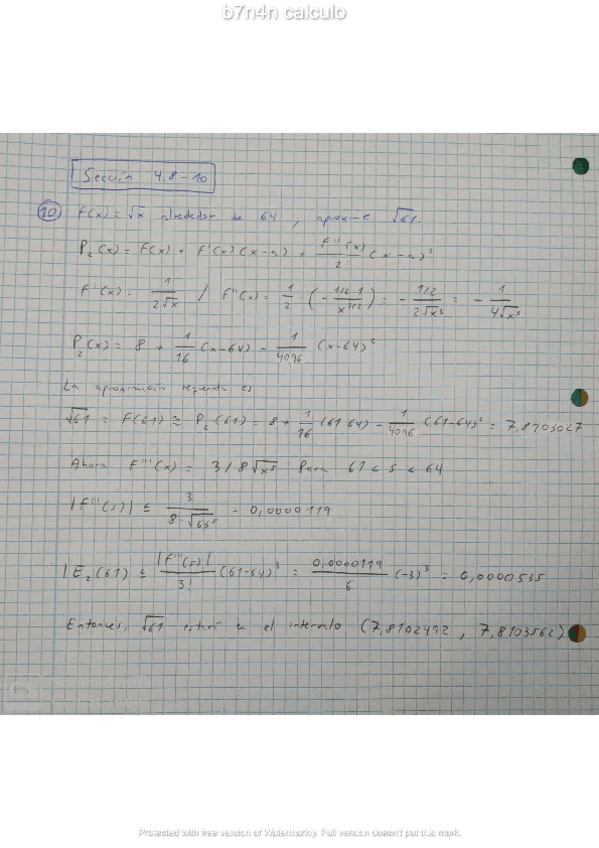 b7n4n calculo
Sección 4,8-10
10 F(x) = √x alrededor de 64, aproxime √61.
P₂(x) = F(x) + F'(x)(x-a) + F''(x)/2! (x-a)²
F'(x) = 1/(2√x) / F''(x) = 1/2 · (- 1/2·1/x^(3/2)) = - (1/2)/(2√x³) = - 1/(4√x³)
P₂(x) = 8 + 1/16 (x-64) - 1/4096 (x-64)²
La aproximación requerida es
√61 = F(61) ≅ P₂(61) = 8 + 1/16 (61-64) - 1/4096 (61-64)² = 7,8103027
Ahora F'''(x) = 3/8√x⁵ Para 61 < s < 64
|F'''(s)| ≤ 3/(8·√61⁵) = 0,0000119
|E₂(61) ≤ |F'''(s)|/3! (61-64)³ = 0,0000119/6 (-3)³ = 0,0000535
Entonces, √61 estará en el intervalo (7,8102492, 7,8103562)
Protected with free version of Watermarkly. Full version doesn't put this mark.